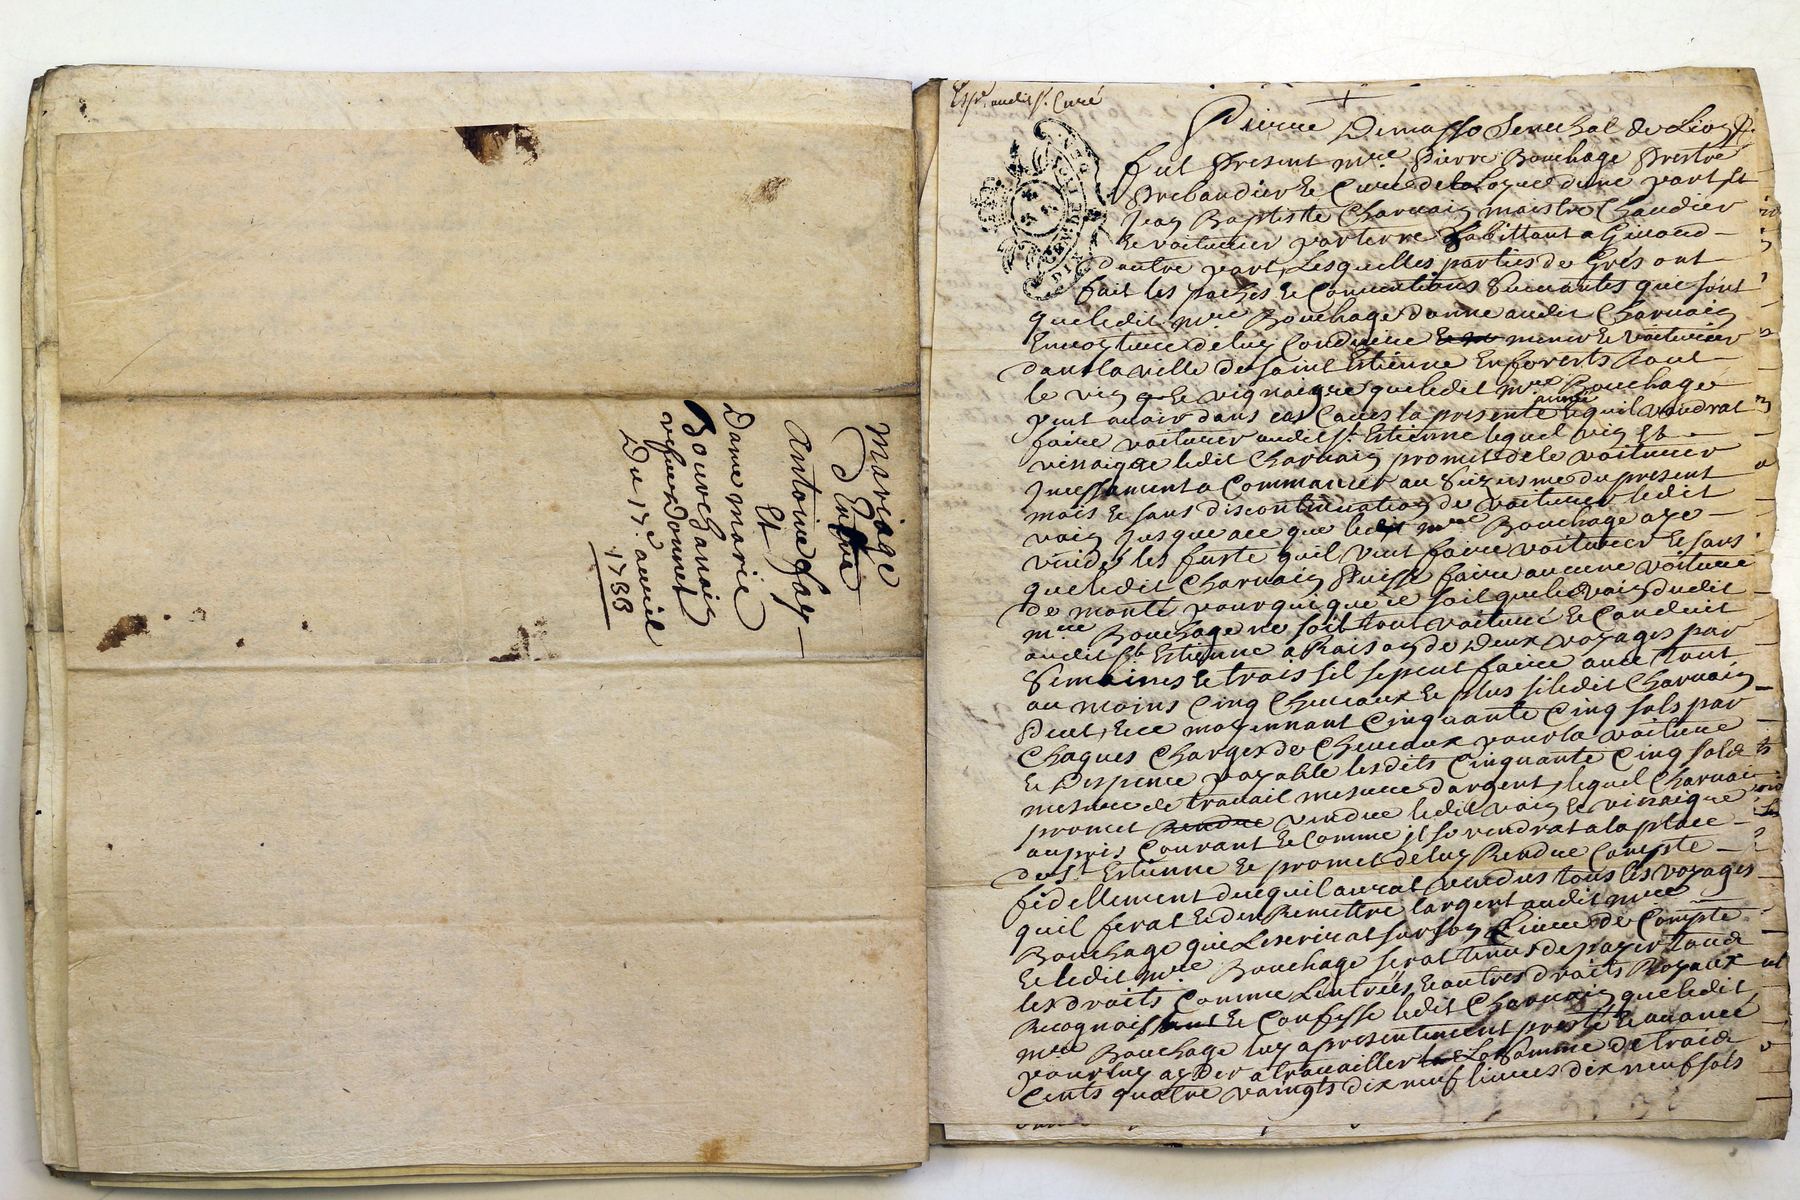 mariage
Entre
Antoine Gay
Et
Dame marie
Bourchanin
vefue Donnet
Du 17e. aueril
1733
Exp. audit sr. Curé
Pierre Demasso Senechal de Lion
fut present mre pierre Bouchage prestre
prebandier & Curé de Laye dune part &
Jean Baptiste Charuain maistre Chandier
& voiturier par terre habittant a Giuord
dautre part, Lesquelles parties de grés ont
fait les paches & Conuentions Suiuantes qui sont
que ledit mre Bouchage donne audit Charuain
de luy Conduire mener & voiturier
dans la ville de saint Estienne En forests tout
le vin & vignaigre que ledit mre Bouchage
peut auoir dans ses Caues la presente année & quil voudrat
faire voiturer audit st. Estienne lequel vin &
vinaigre ledit Charuain promet de le voiturer
Incessament a Commancer au Siziesme du present
mois & sans discontinuation de voiturer ledit
vain jusque ace que ledit mre Bouchage aye
vuidé les fuste quil veut faire voiturer & sans
que ledit Charuain Puisse faire aucune voiture
de monté pour qui que ce soit que le vain dudit
mre Bouchage ne soit tout voituré & Conduit
audit st Estienne a Raison de Deux voyages par
Semaines & trois sil se peut faire auec tout
au moins Cinq Cheuaux & plus si ledit Charuain
Peut, & ce moyennant Cinquante Cinq sols par
Chaques Charges de Cheuaux pour la voiture
& Despence payable lesdits Cinquante Cinq sols
mesure de trauail mesure dargent, lequel Charuain
promet Rendre vendre ledit vain & vinaigre
au pris Courant & Comme jl se vendrat a la place
de st. Estienne & promet de luy Rendre Compte
fidellement de ce quil aurat vendus tous les voyages
quil ferat & den Remettre largent audit mre
Bouchage qui Lescrirat sur son Liure de Compte
& ledit mre Bouchage serat tenus de payer tous
les droits Comme Lentrées, & autres droits Royaux
Recognoissant & Confesse ledit Charuain que ledit
mre Bouchage luy a presentement presté & auancé
pour luy ayder a trauailler La Somme de trois
Cents quatre vaingts dix neuf liures dix neuf sols